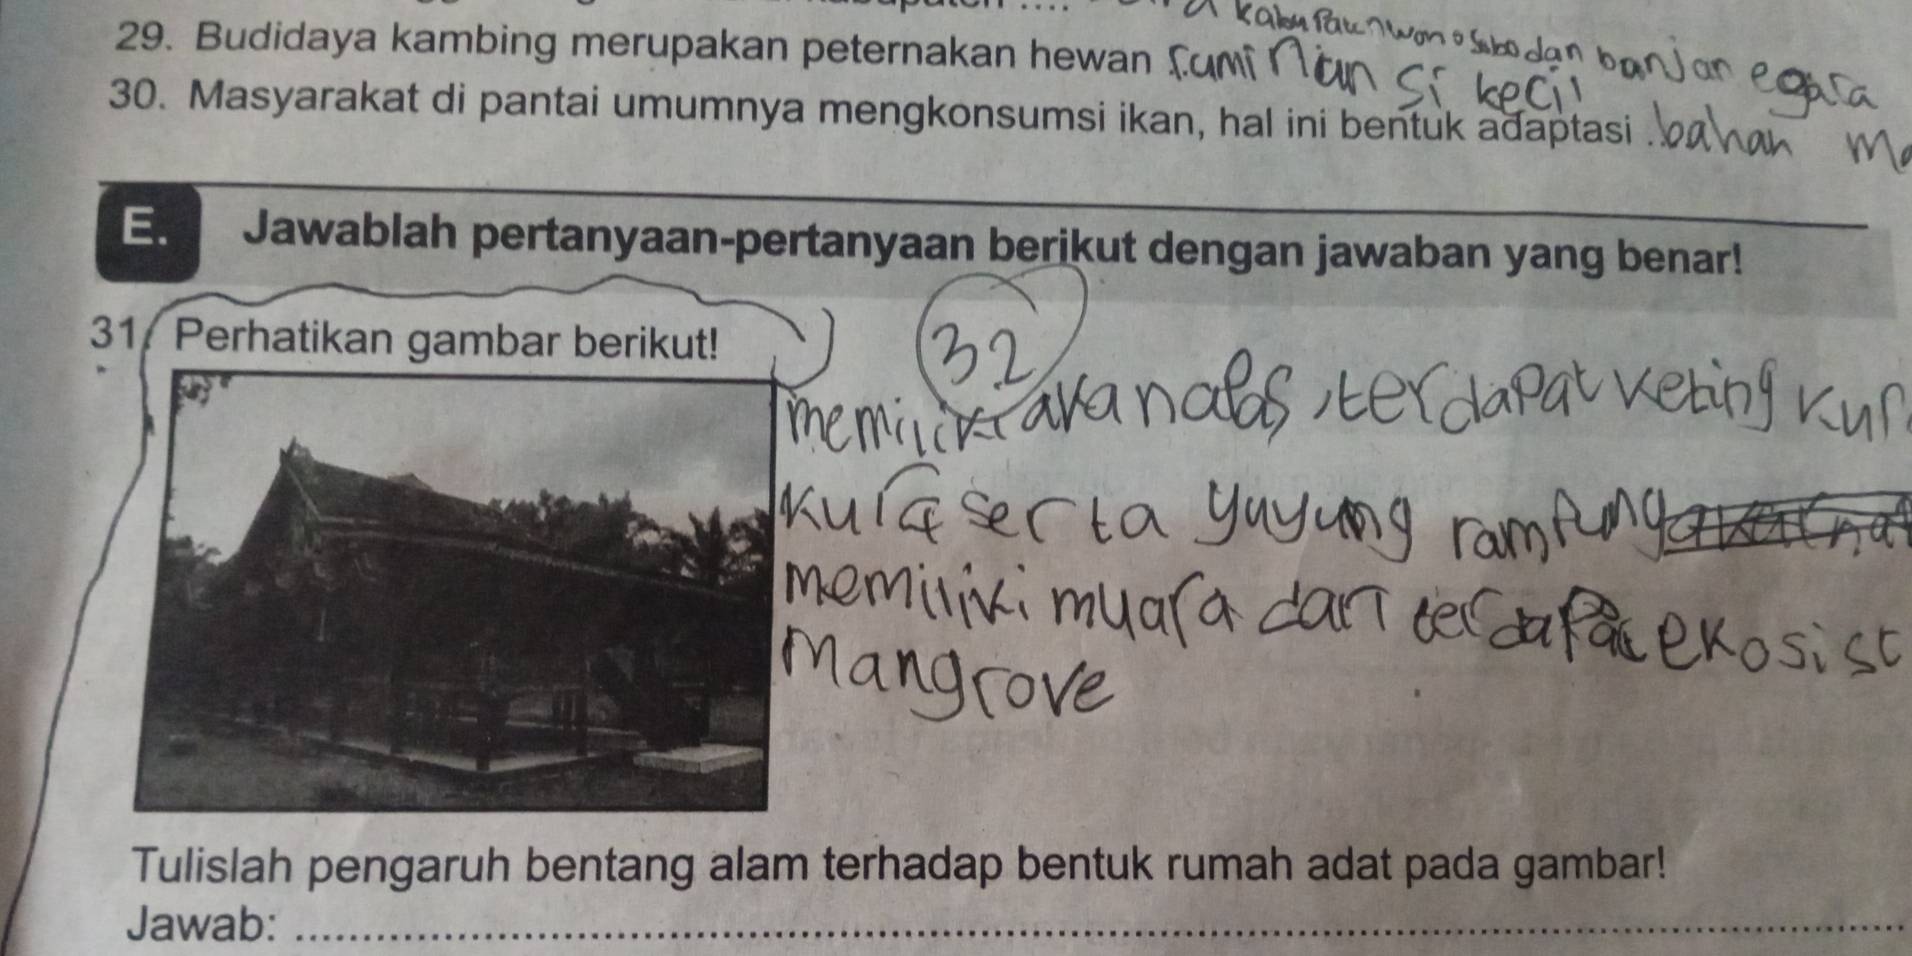 kabupaten wonosobo dan banjarnegara
29. Budidaya kambing merupakan peternakan hewan ruminansi kecil
30. Masyarakat di pantai umumnya mengkonsumsi ikan, hal ini bentuk adaptasi ..bahan
E. Jawablah pertanyaan-pertanyaan berikut dengan jawaban yang benar!
31 Perhatikan gambar berikut!
32
memiliki , terdapat keting
serta yuyung
memiliki muara dan terdapat ekosist
Mangrove
Tulislah pengaruh bentang alam terhadap bentuk rumah adat pada gambar!
Jawab: